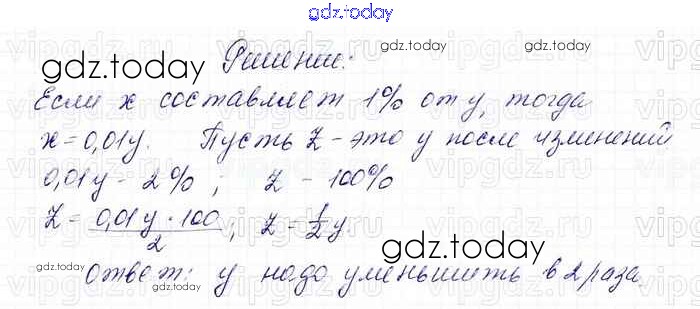 gdz.today
Решение:
Если x составляет 1% от y, тогда
x = 0,01y. Пусть Z - это y после изменений
0,01y - 2% ; Z - 100%
Z = 0,01y · 100 / 2 ; Z = 1/2 y.
Ответ: y надо уменьшить в 2 раза
gdz.today
gdz.today
gdz.today
gdz.today
gdz.today
gdz.today
vipgdz.ru